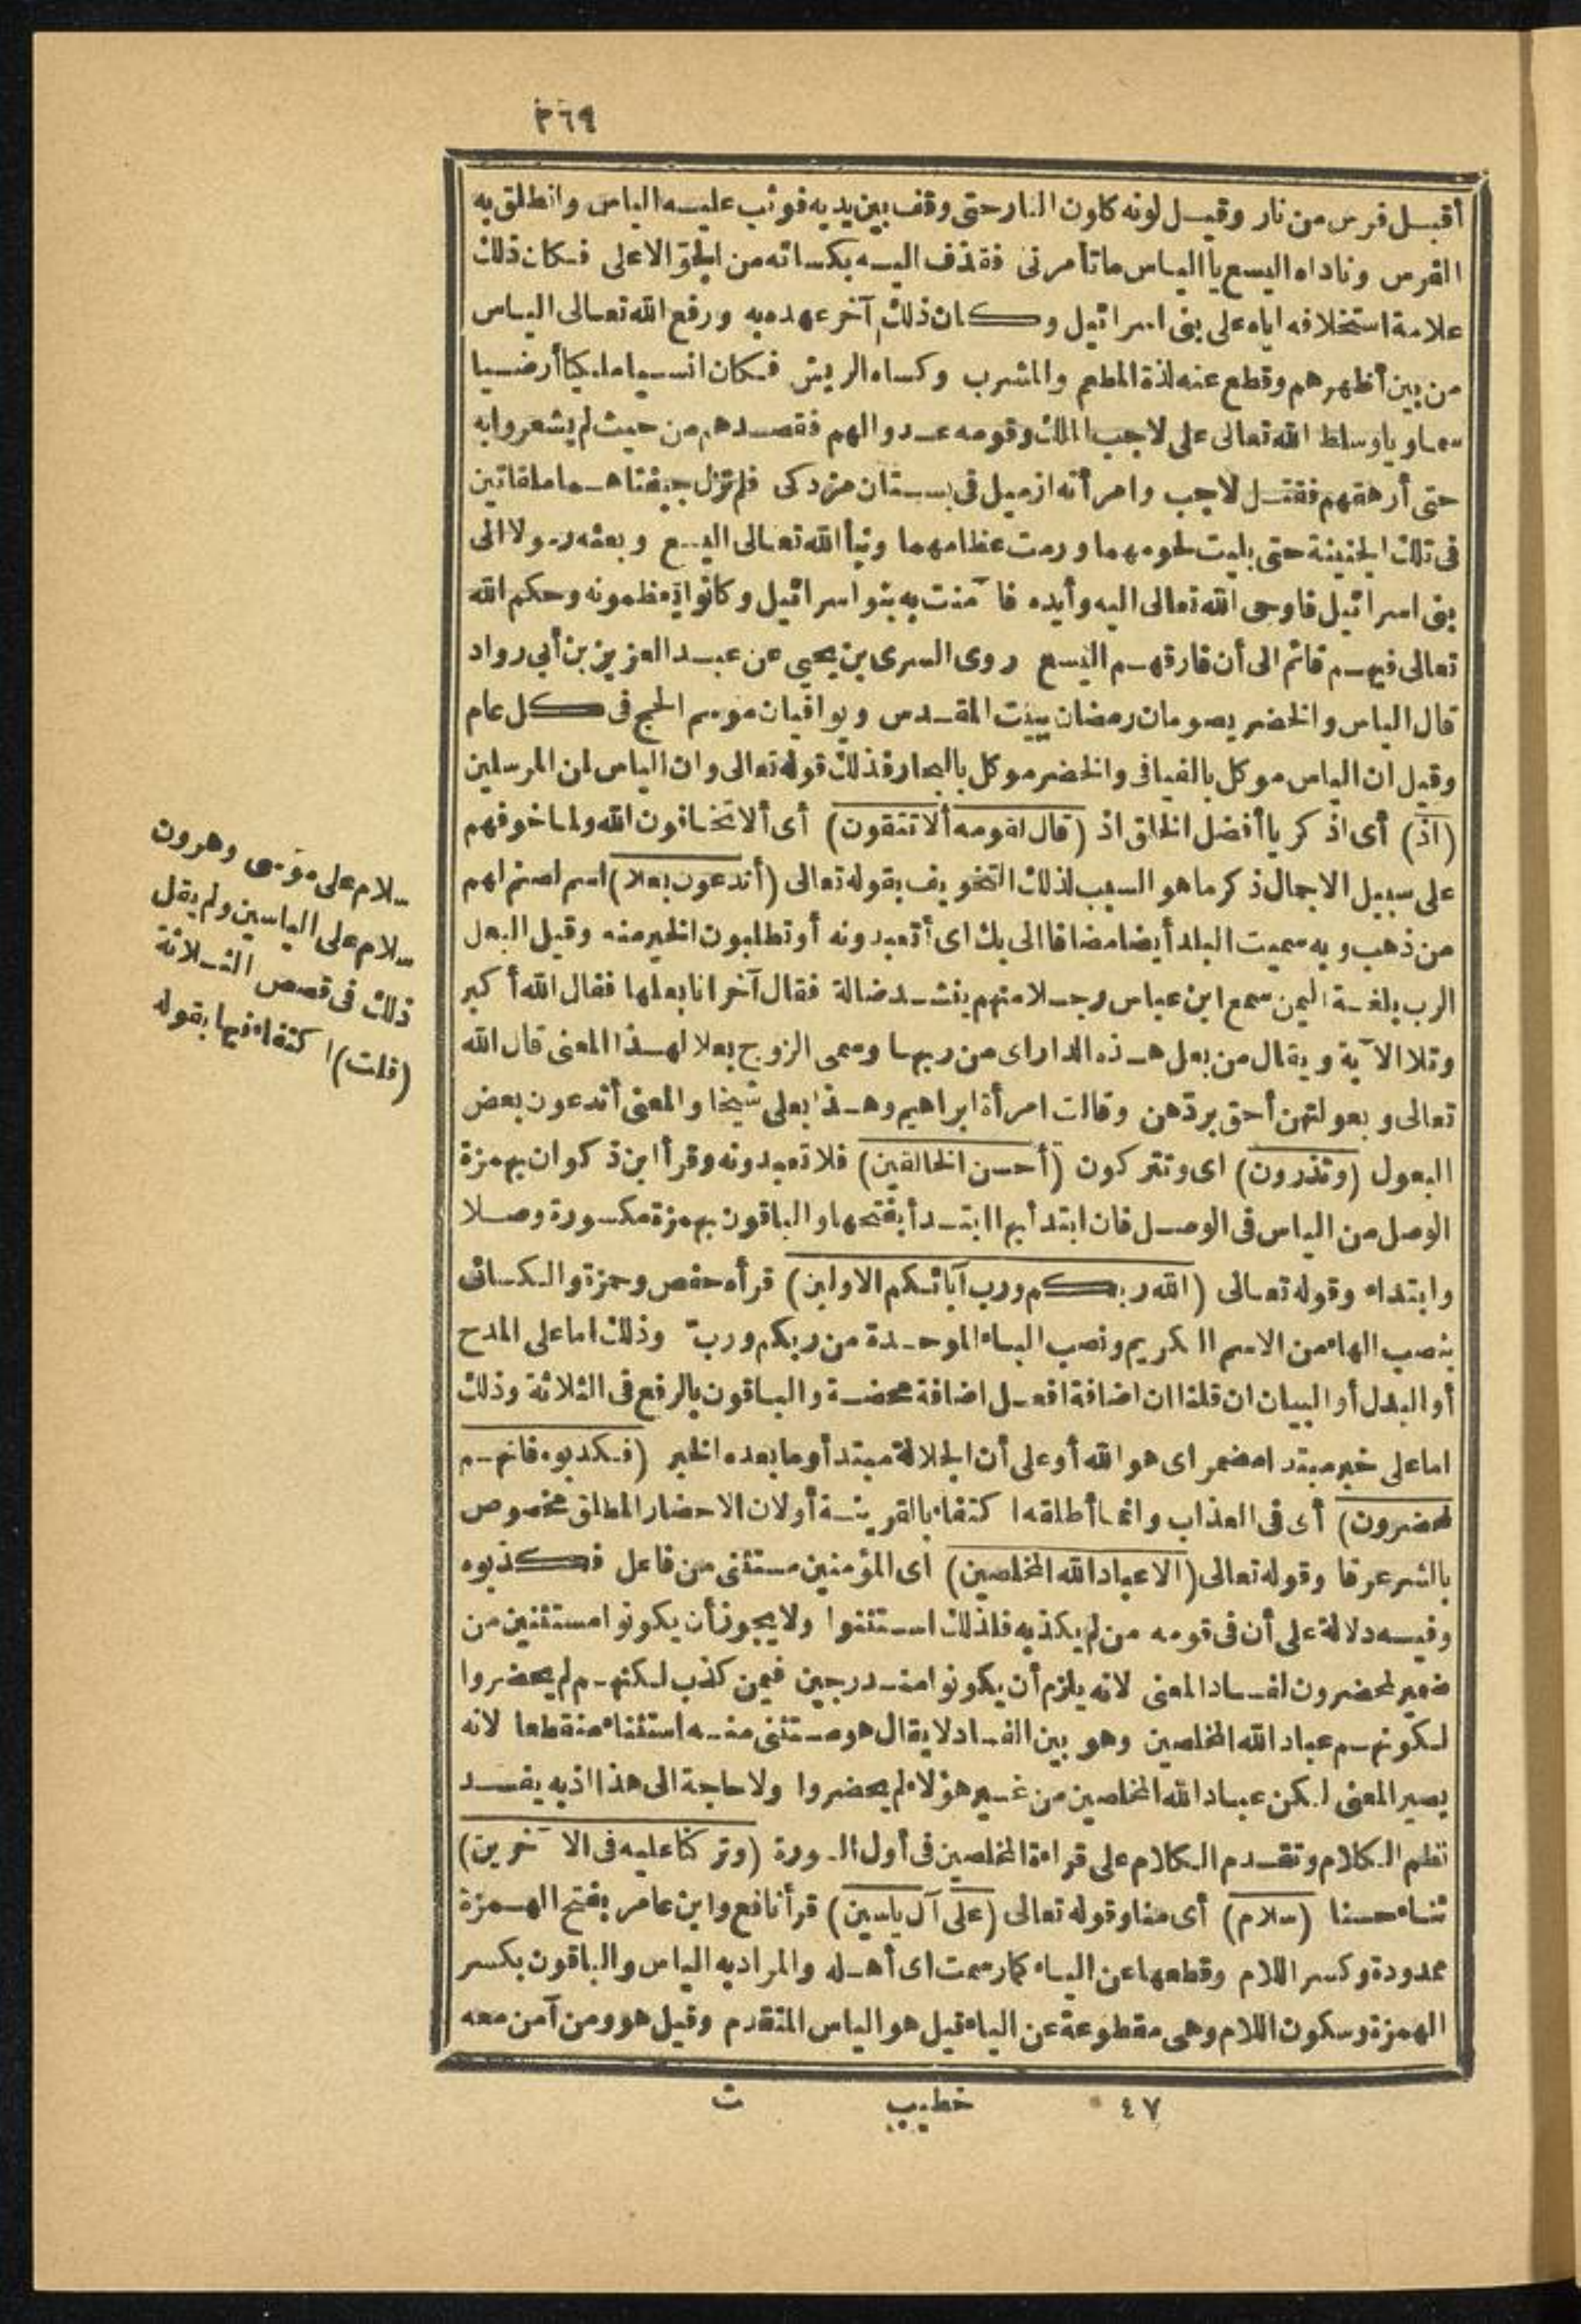 ٣٦٩
أقبل فرس من نار وقيل لونه كلون النار حتى وقف بين يديه فوثب عليه الياس وانطلق به
الفرس وناداه اليسع يا الياس ما تأمرنى فقذف اليه بكسائه من الجوّ الاعلى فكان ذلك
علامة استخلافه اياه على بنى اسرائيل وكان ذلك آخر عهده به ورفع الله تعالى الياس
من بين أظهرهم وقطع عنه لذة المطعم والمشرب وكساه الريش فكان انسيا ملكيا أرضيا
سماويا وسلط الله تعالى على لاجب الملك وقومه عدوا لهم فقصدهم من حيث لم يشعروا به
حتى أرهقهم فقتل لاجب وامرأته ازميل فى بستان مزدكى فلم تزل جيفتاهما ملقاتين
فى تلك الجنينة حتى بليت لحومهما ورمت عظامهما ونبأ الله تعالى اليسع وبعثه رسولا الى
بنى اسرائيل فاوحى الله تعالى اليه وأيده فآمنت به بنو اسرائيل وكانوا يعظمونه وحكم الله
تعالى فيهم قائم الى أن فارقهم اليسع روى السرى بن يحيى عن عبد العزيز بن أبى رواد
قال الياس والخضر يصومان رمضان ببيت المقدس ويوافيان موسم الحج فى كل عام
وقيل ان الياس موكل بالفيافى والخضر موكل بالبحار فذلك قوله تعالى وان الياس لمن المرسلين
(اذ) أى اذكر يا أفضل الخلق اذ (قال لقومه ألا تتقون) أى ألا تخافون الله ولما خوفهم
على سبيل الاجمال ذكر ما هو السبب لذلك التخويف بقوله تعالى (أتدعون بعلا) اسم لصنم لهم
من ذهب وبه سميت البلد أيضا مضافا الى بك اى أتعبدونه أو تطلبون الخير منه وقيل البعل
الرب بلغة اليمن سمع ابن عباس رجلا منهم ينشد ضالة فقال آخر انا بعلها فقال الله أكبر
وتلا الآية ويقال من بعل هذه الدار اى من ربها وسمى الزوج بعلا لهذا المعنى قال الله
تعالى وبعولتهن أحق بردّهن وقالت امرأة ابراهيم وهذا بعلى شيخا والمعنى أتدعون بعض
البعول (وتذرون) اى وتتركون (أحسن الخالقين) فلا تعبدونه وقرأ ابن ذكوان بهمزة
الوصل من الياس فى الوصل فان ابتدأ بها ابتدأ بفتحها والباقون بهمزة مكسورة وصلا
وابتداء وقوله تعالى (الله ربكم ورب آبائكم الاولين) قرأه حفص وحمزة والكسائى
بنصب الهاء من الاسم الكريم ونصب الباء الموحدة من ربكم وربّ وذلك اما على المدح
أو البدل أو البيان ان قلنا ان اضافة افعل اضافة محضة والباقون بالرفع فى الثلاثة وذلك
اما على خبر مبتدا مضمر اى هو الله أو على أن الجلالة مبتدأ وما بعده الخبر (فكذبوه فانهم
لمحضرون) أى فى العذاب وانما أطلقه اكتفاء بالقرينة أو لان الاحضار المطلق مخصوص
بالشر عرفا وقوله تعالى (الا عباد الله المخلصين) اى المؤمنين مستثنى من فاعل فكذبوه
وفيه دلالة على أن فى قومه من لم يكذبه فلذلك استثنوا ولا يجوز أن يكونوا مستثنين من
ضمير لمحضرون لفساد المعنى لانه يلزم أن يكونوا مندرجين فيمن كذب لكنهم لم يحضروا
لكونهم عباد الله المخلصين وهو بين الفساد لا يقال هو مستثنى منه استثناء منقطعا لانه
يصير المعنى لكن عباد الله المخلصين من غير هؤلاء لم يحضروا ولا حاجة الى هذا اذ به يفسد
نظم الكلام وتقدم الكلام على قراءة المخلصين فى أول السورة (وتركنا عليه فى الآخرين)
ثناء حسنا (سلام) أى منا وقوله تعالى (على آل ياسين) قرأ نافع وابن عامر بفتح الهمزة
ممدودة وكسر اللام وقطعها عن الياء كما رسمت اى أهله والمراد به الياس والباقون بكسر
الهمزة وسكون اللام وهى مقطوعة عن الياء قيل هو الياس المتقدم وقيل هو ومن آمن معه
سلام على موسى وهرون
سلام على الياسين ولم يقل
ذلك فى قصص الثلاثة
(قلت) اكتفاء فيها بقوله
٤٧ خطيب ث